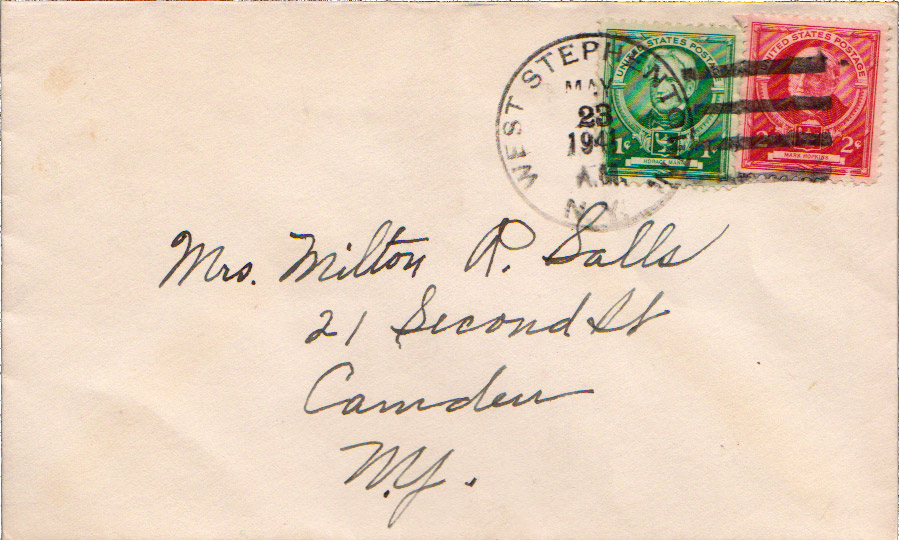 WEST STEPHENTOWN
MAY
23
194
A.M.
N.Y.
UNITED STATES POSTAGE
1¢ 1¢
HORACE MANN
UNITED STATES POSTAGE
2¢ 2¢
MARK HOPKINS
Mrs. Milton R. Salls
21 Second St
Camden
N.Y.